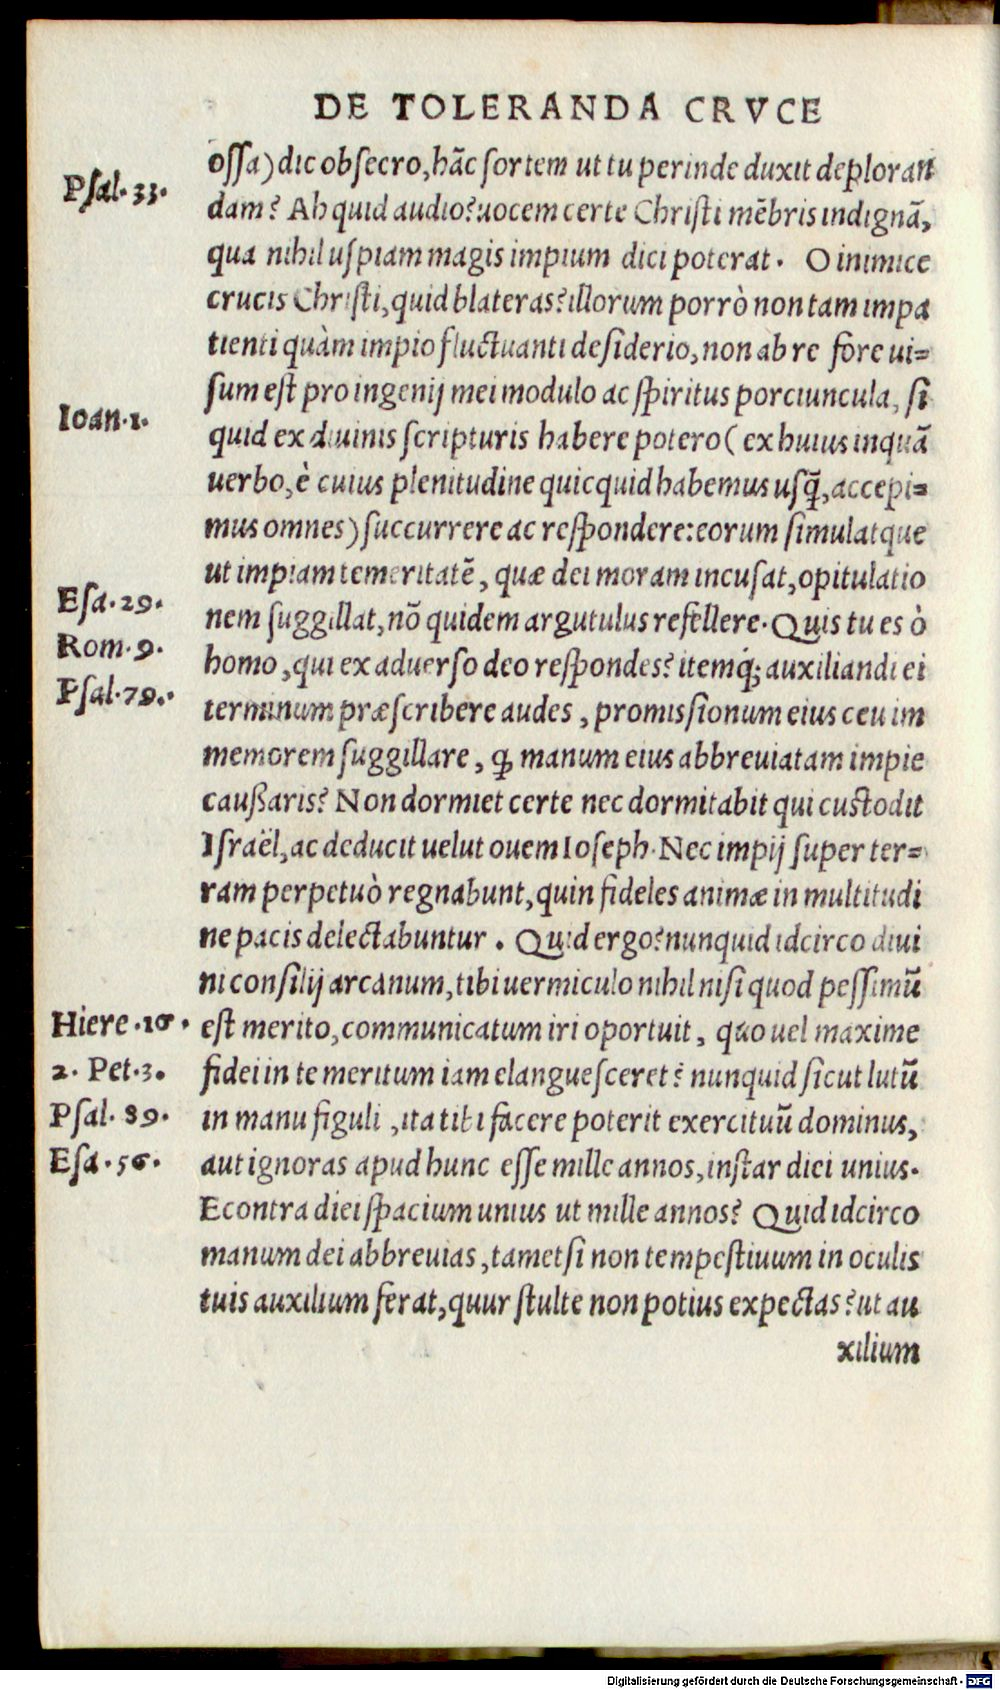 DE TOLERANDA CRVCE
Psal. 33.
ossa) dic obsecro, hāc sortem ut tu perinde duxit deploran
dam? Ah quid audio? uocem certe Christi mēbris indignā,
qua nihil uspiam magis impium dici poterat. O inimice
crucis Christi, quid blateras? illorum porrò non tam impa
tienti quàm impio fluctuanti desiderio, non ab re fore ui=
sum est pro ingenij mei modulo ac spiritus porciuncula, si
Ioan. 1.
quid ex diuinis scripturis habere potero (ex huius inquā
uerbo, è cuius plenitudine quicquid habemus usq̄, accepi=
mus omnes) succurrere ac respondere: eorum simulatque
ut impiam temeritatē, quæ dei moram incusat, opitulatio
Esa. 29.
nem suggillat, nō quidem argutulus refellere. Quis tu es ò
Rom. 9.
homo, qui ex aduerso deo respondes? itemq́; auxiliandi ei
Psal. 79.
terminum præscribere audes, promissionum eius ceu im
memorem suggillare, ꝙ manum eius abbreuiatam impie
caußaris? Non dormiet certe nec dormitabit qui custodit
Israël, ac deducit uelut ouem Ioseph. Nec impij super ter=
ram perpetuò regnabunt, quin fideles animæ in multitudi
ne pacis delectabuntur. Quid ergo? nunquid idcirco diui
ni consilij arcanum, tibi uermiculo nihil nisi quod pessimū
Hiere. 18.
est merito, communicatum iri oportuit, quo uel maxime
2. Pet. 3.
fidei in te meritum iam elanguesceret? nunquid sicut lutū
Psal. 89.
in manu figuli, ita tibi facere poterit exercituū dominus,
Esa. 56.
aut ignoras apud hunc esse mille annos, instar diei unius.
Econtra diei spacium unius ut mille annos? Quid idcirco
manum dei abbreuias, tametsi non tempestiuum in oculis
tuis auxilium ferat, quur stulte non potius expectas? ut au
xilium
Digitalisierung gefördert durch die Deutsche Forschungsgemeinschaft - DFG